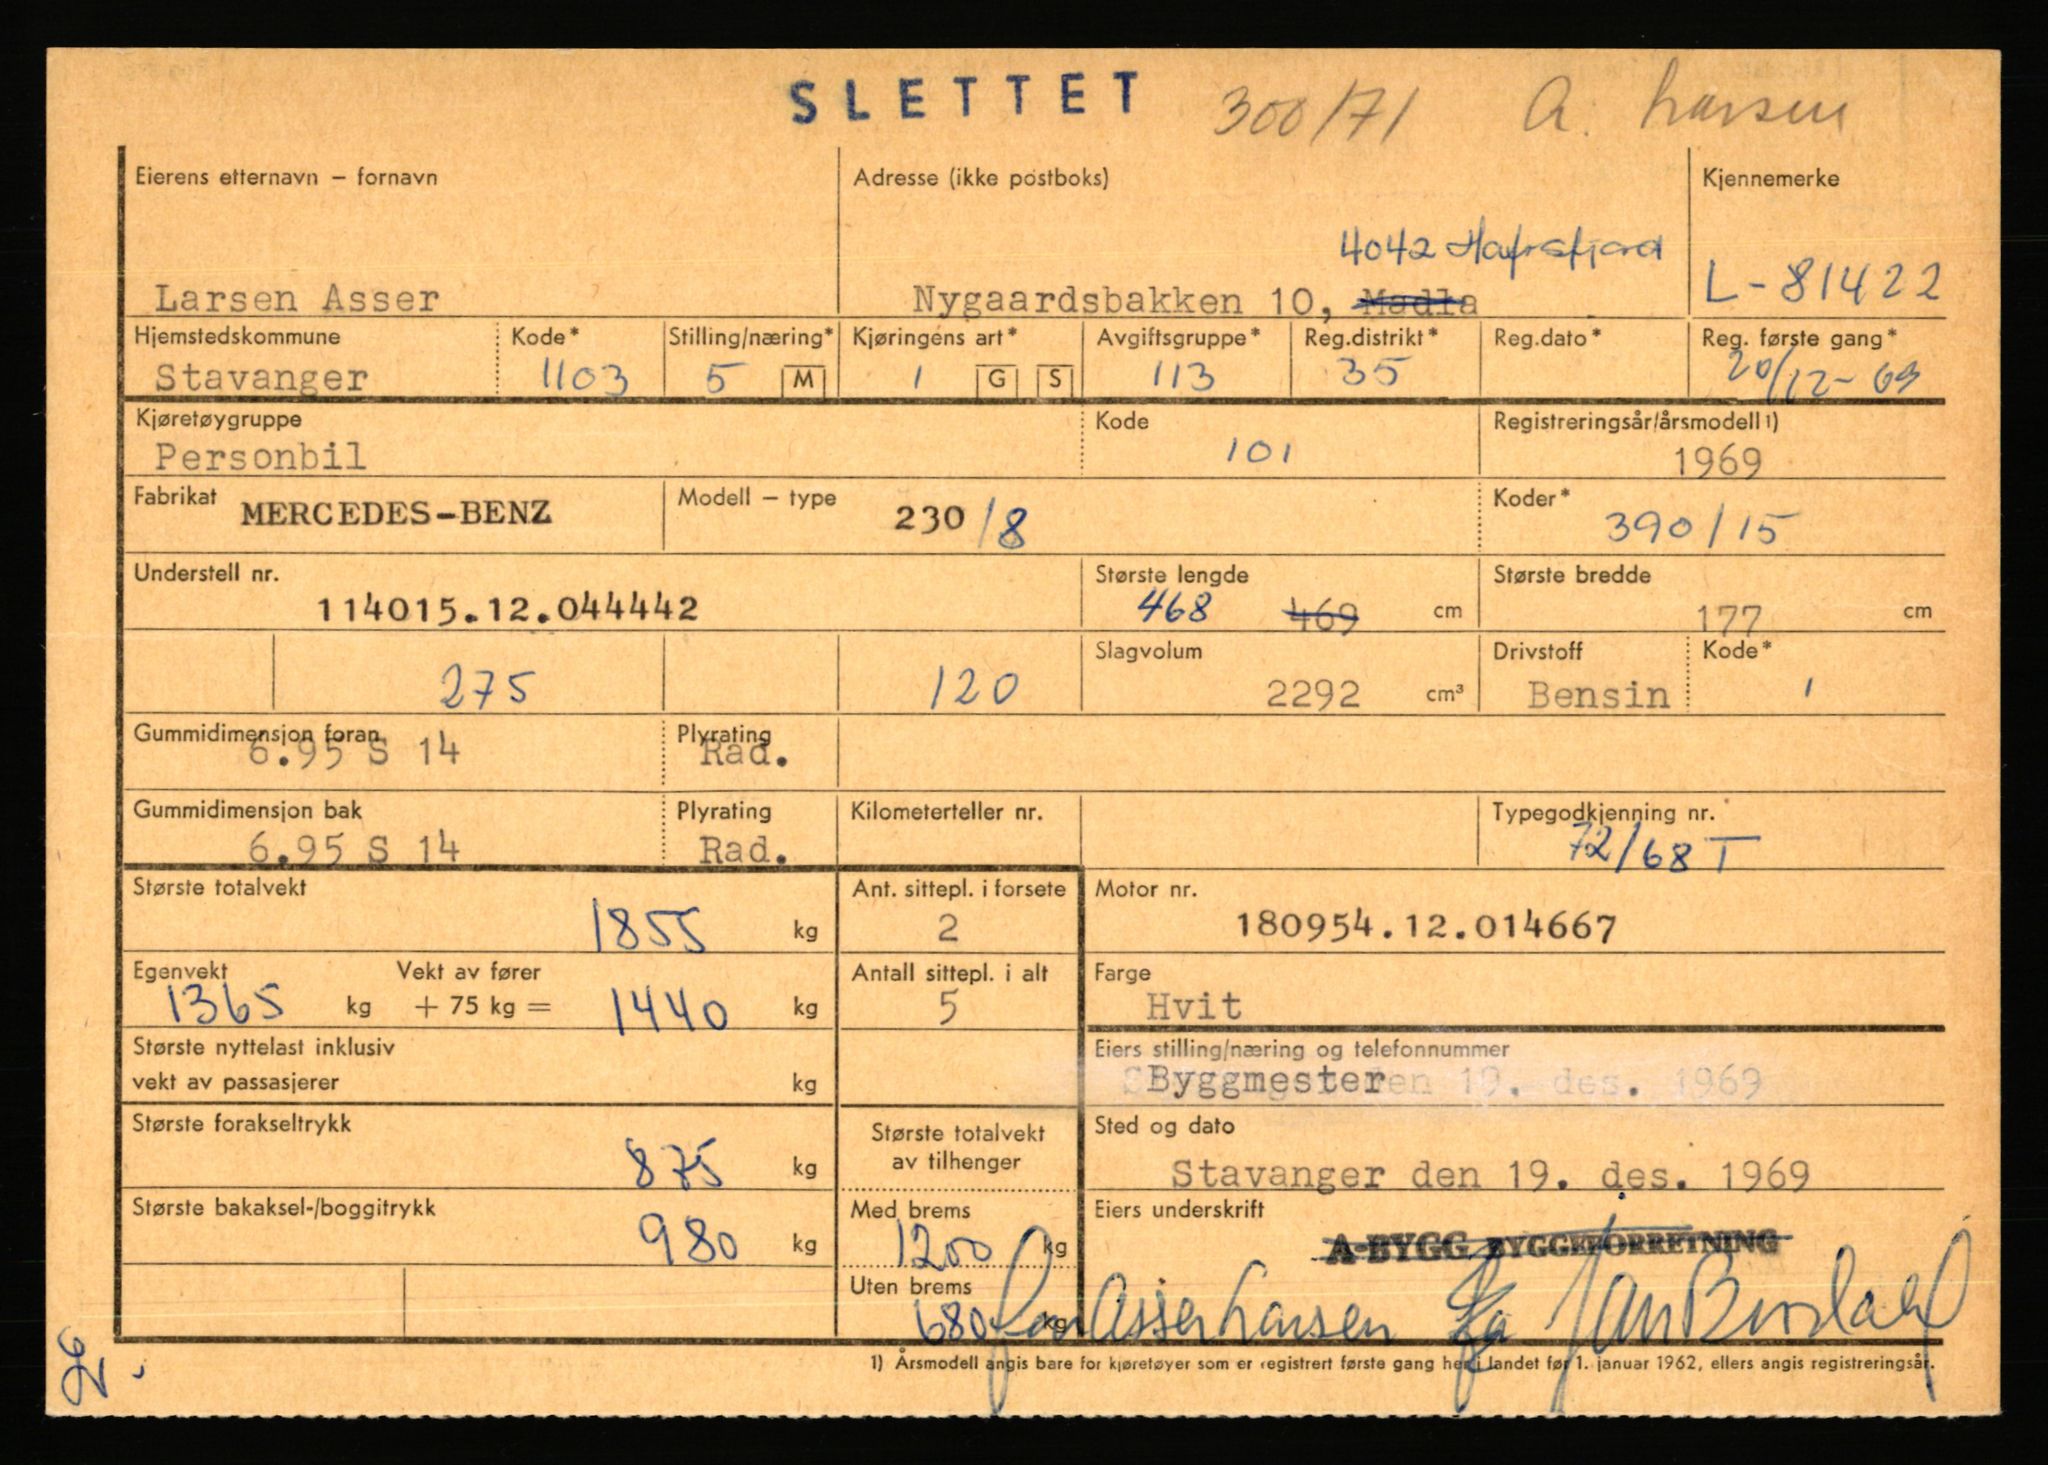 SLETTET 300/71 A. Larsen
Eierens etternavn – fornavn Adresse (ikke postboks) Kjennemerke
4042 Hafrsfjord
Larsen Asser Nygaardsbakken 10, Madla L-81422
Hjemstedskommune Kode* Stilling/næring* Kjøringens art* Avgiftsgruppe* Reg.distrikt* Reg.dato* Reg. første gang*
Stavanger 1103 5 M 1 G S 113 35 20/12-69
Kjøretøygruppe Kode Registreringsår/årsmodell 1)
Personbil 101 1969
Fabrikat MERCEDES-BENZ Modell – type 230/8 Koder* 390/15
Understell nr. Største lengde Største bredde
114015.12.044442 468 469 cm 177 cm
Slagvolum Drivstoff Kode*
275 120 2292 cm³ Bensin 1
Gummidimensjon foran Plyrating
6.95 S 14 Rad.
Gummidimensjon bak Plyrating Kilometerteller nr. Typegodkjenning nr.
6.95 S 14 Rad. 72/68 T
Største totalvekt Ant. sittepl. i forsete Motor nr.
1855 kg 2 180954.12.014667
Egenvekt Vekt av fører Antall sittepl. i alt Farge
1365 kg + 75 kg = 1440 kg 5 Hvit
Største nyttelast inklusiv Eiers stilling/næring og telefonnummer
vekt av passasjerer kg Byggmester en 19. des. 1969
Største forakseltrykk Største totalvekt Sted og dato
875 kg av tilhenger Stavanger den 19. des. 1969
Største bakaksel-/boggitrykk Med brems Eiers underskrift
980 kg 1200 kg A-BYGG BYGGEFORRETNING
Uten brems
680 kg for Asser Larsen
1) Årsmodell angis bare for kjøretøyer som er registrert første gang her i landet før 1. januar 1962, ellers angis registreringsår.